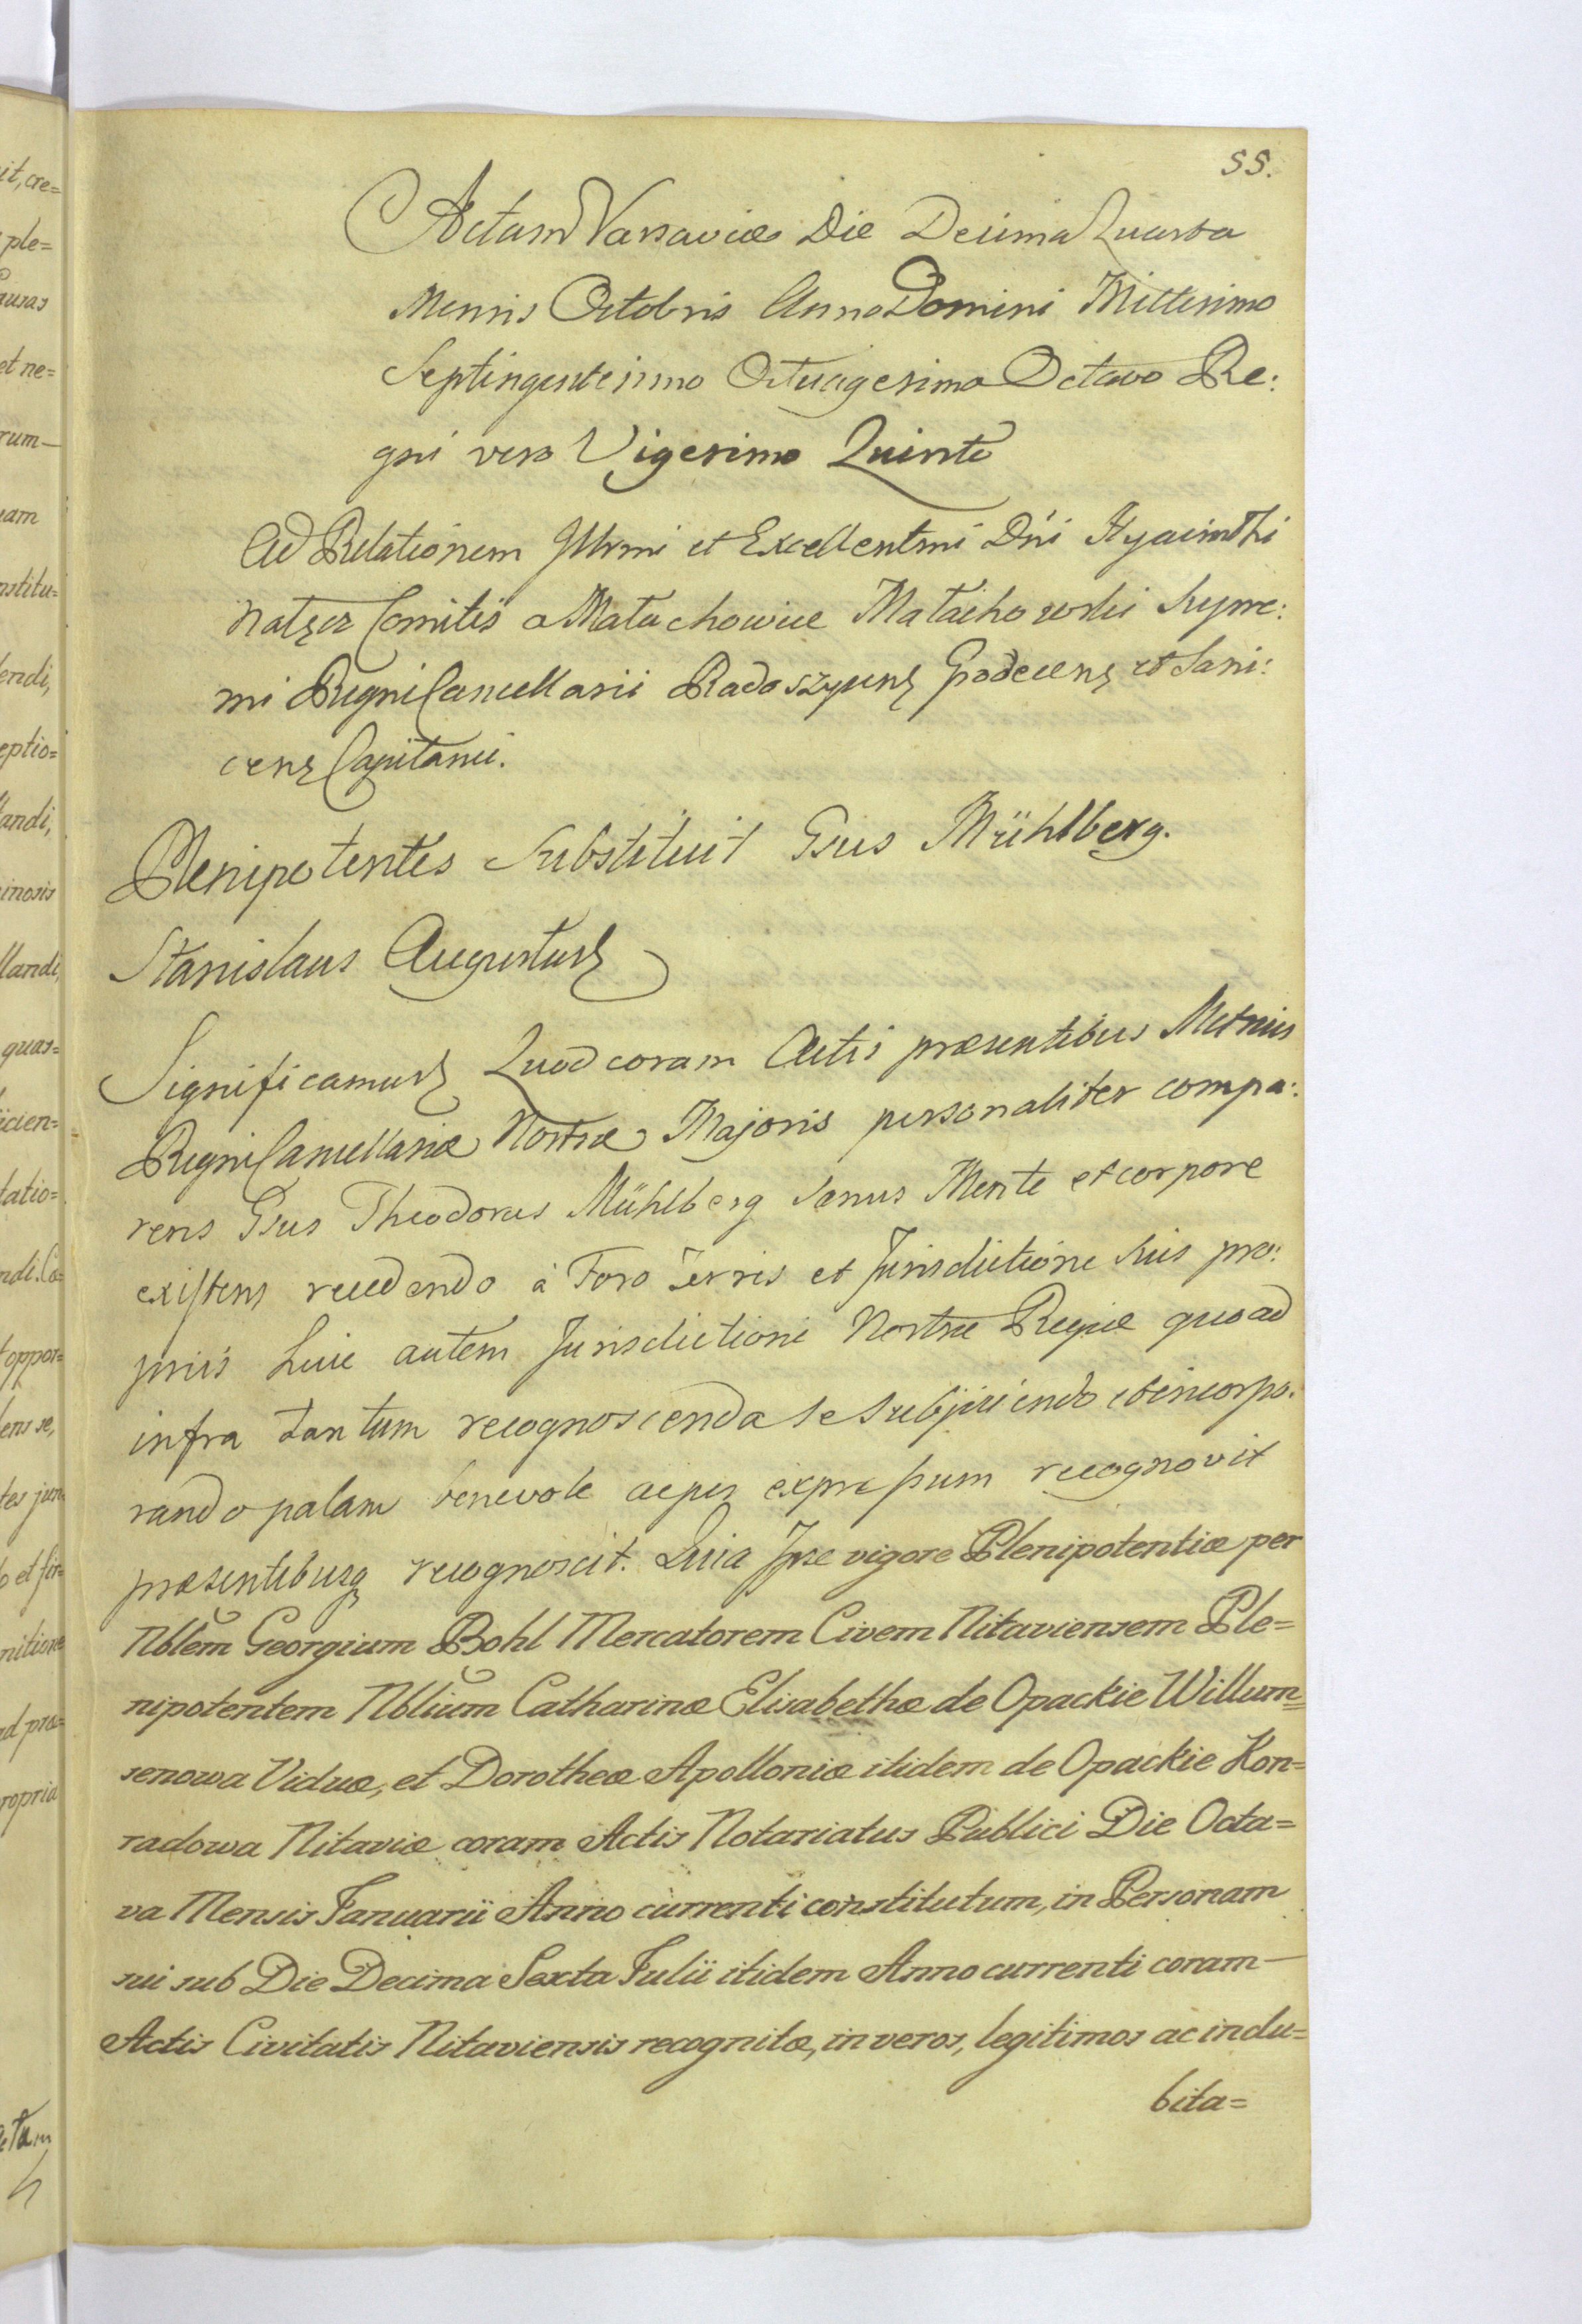 55.
Actum Varsaviæ Die Decima Quarta
Mensis Octobris Anno Domini Millesimo
Septingentesimo Octuagesimo Octavo Re:
gni vero Vigesimo Quinto
Ad Relationem Illrmi et Excellentmi Dni Hyacinthi
Nałęcz Comitis a Małachowice Małachowski Supre:
mi Regni Cancellarii Radoszycens Grodecens et Sani:
cens Capitanei.
Plenipotentes Substituit Gsus Mühlberg.
Stanislaus Augustus
Significamus Quod coram Actis præsentibus Metrices
Regni Cancellariæ Nostræ Majoris personaliter compa:
rens Gsus Theodorus Mühlberg Sanus Mente et corpore
existens recedendo à Foro Terris et Jurisdictione suis pro:
priis huic autem Jurisdictioni Nostræ Regiæ quoad
infra tantum recognoscenda se subjiciendo et incorpo:
rando palam benevole ac per expressum recognovit
præsentibusq recognoscit. Quia Ipse vigore Plenipotentiæ per
Nblem Georgium Bohl Mercatorem Civem Mitaviensem Ple=
nipotentem Nblium Catharinæ Elisabethæ de Opackie Willum=
senowa Viduæ, et Dorotheæ Apolloniæ itidem de Opackie Kon=
radowa Mitaviæ coram Actis Notariatus Publici Die Octa=
va Mensis Januarii Anno currenti constitutum, in Personam
sui sub Die Decima Sexta Julii itidem Anno currenti coram
Actis Civitatis Mitaviensis recognitæ, in veros, legitimos ac indu=
bita=